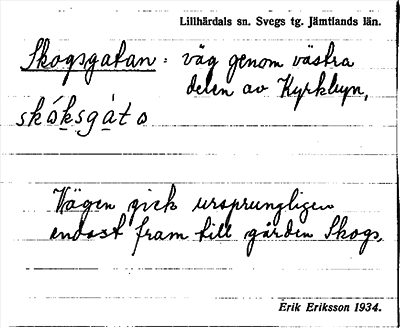 Lillhärdals sn. Svegs tg. Jämtlands län.
Skogsgatan: väg genom västra
delen av Kyrkbyn,
skóksgàta
Vägen gick ursprungligen
endast fram till gården Skogs.
Erik Eriksson 1934.